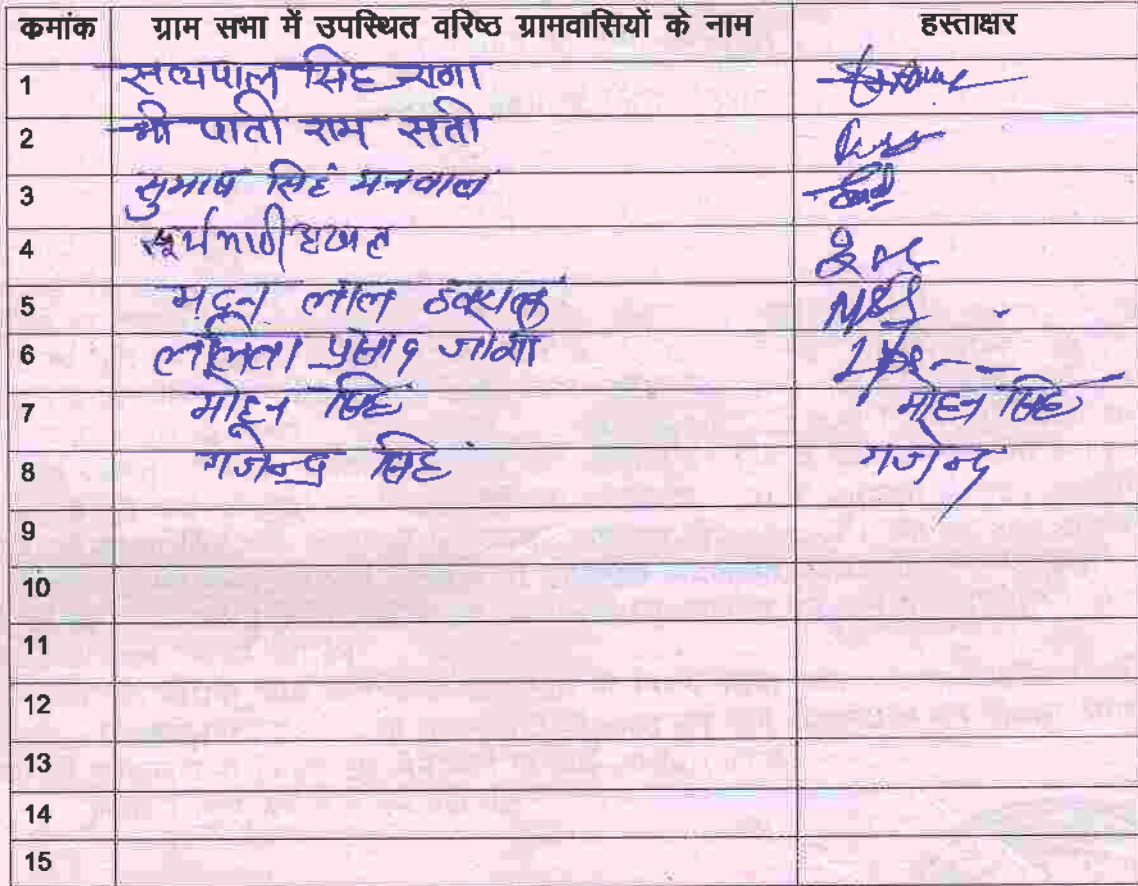 कमांक ग्राम सभा में उपस्थित वरिष्ठ ग्रामवासियों के नाम हस्ताक्षर
1 सत्यपाल सिंह राणा
2 श्री पाती राम सती
3 सुभाष सिंह मनवाल
4
5 मदन लाल
6 ललिता प्रसाद जोशी
7 मोहन सिंह मोहन सिंह
8 गजेन्द्र सिंह गजेन्द्र
9
10
11
12
13
14
15